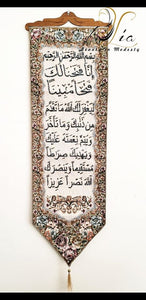 Sia
Modesty
بسم الله الرحمن الرحيم
إنا فتحنا لك
فتحا مبينا
ليغفر لك الله ما تقدم
من ذنبك وما تأخر
ويتم نعمته عليك
ويهديك صرطا
مستقيما وينصرك
الله نصرا عزيزا